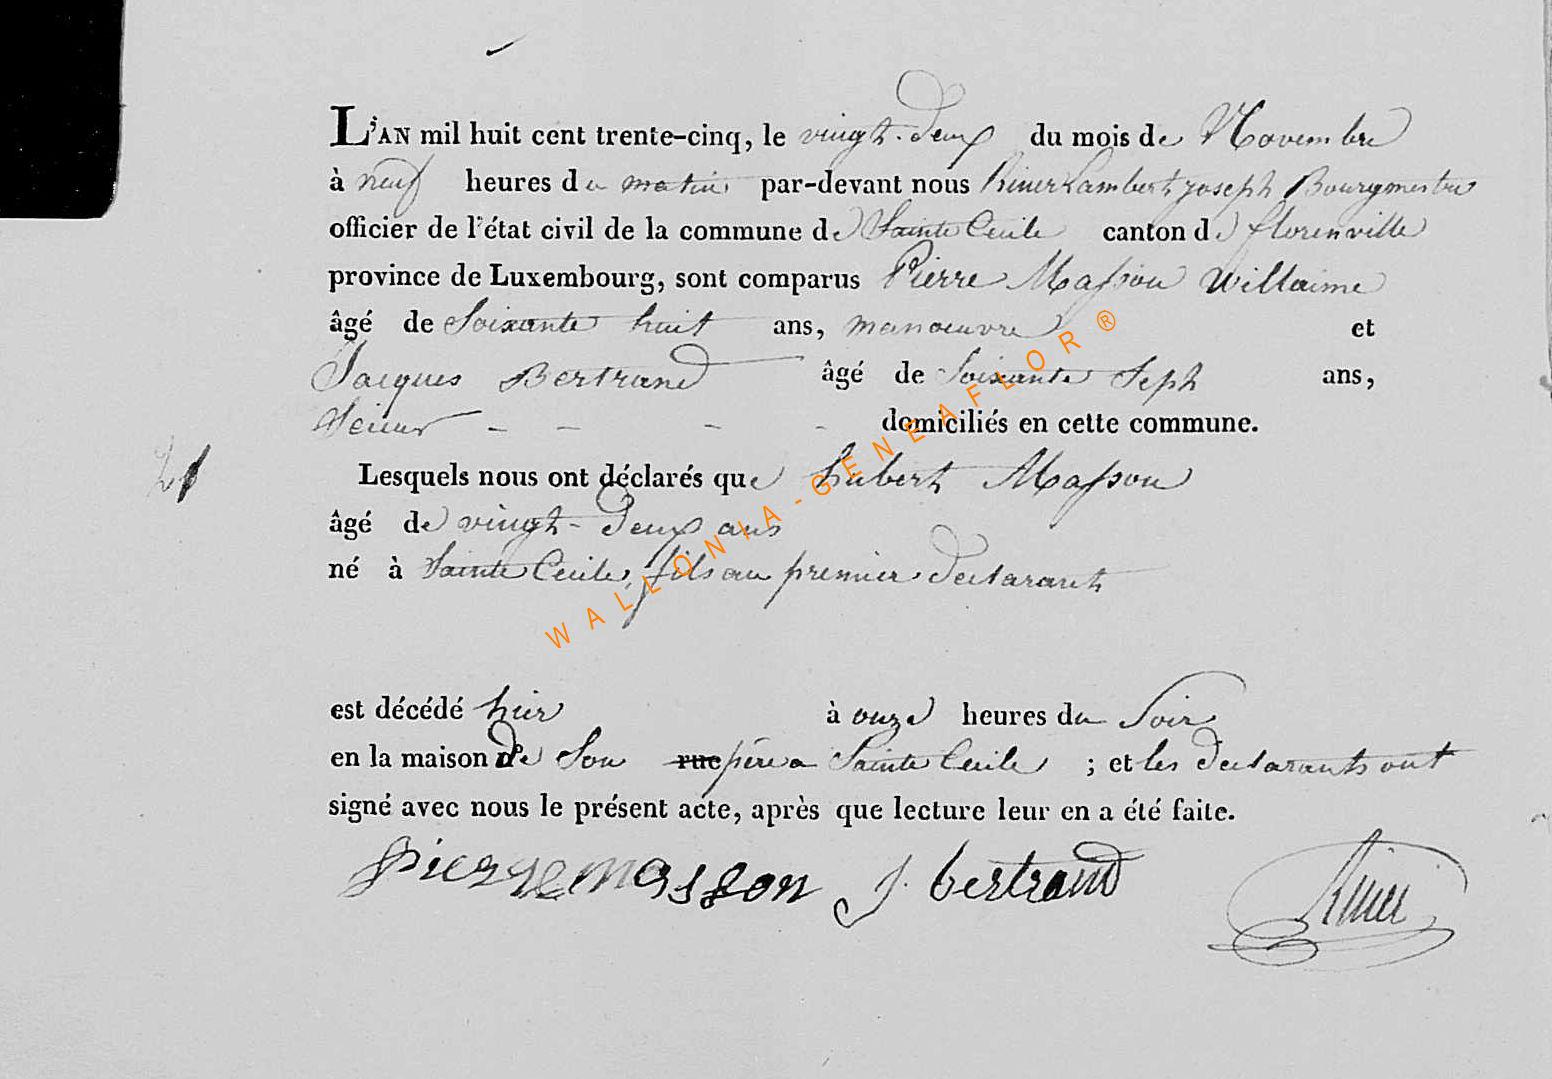 L'AN mil huit cent trente-cinq, le vingt-deux du mois de Novembre
à neuf heures du matin par-devant nous Riner Lambert joseph Bourgmestre
officier de l'état civil de la commune de Sainte Cecile canton de florenville
province de Luxembourg, sont comparus Pierre Masson Willaime
âgé de Soixante huit ans, manoeuvre et
Jacques Bertrand âgé de Soixante Sept ans,
domiciliés en cette commune.
21
Lesquels nous ont déclarés que hubert Masson
âgé de vingt-deux ans
né à Sainte Cecile, fils au premier declarant
est décédé hier à onze heures du Soir
en la maison de Son rue père a Sainte Cecile ; et les declarants ont
signé avec nous le présent acte, après que lecture leur en a été faite.
pierre masson J. bertrand Riner
WALLONIA-GENEAFLOR®